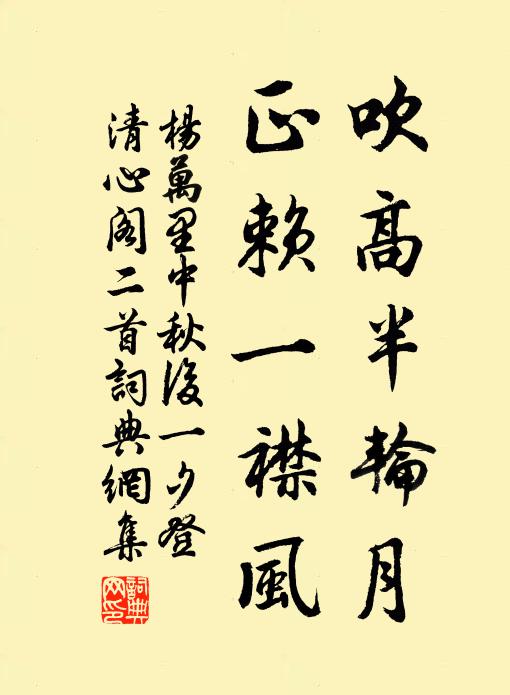 吹高半輪月
正賴一襟風
楊萬里中秋後一夕登
清心閣二首詞典網集
詞典网印